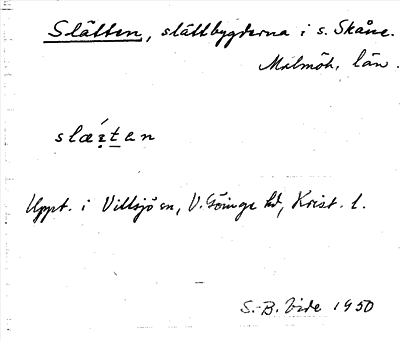 Slätten, slättbygderna i s. Skåne.
Malmöh. län.
slǽ̣t̠en
Uppt. i Vittsjö sn, V. Göinge hd, Krist. l.
S.-B. Vide 1950